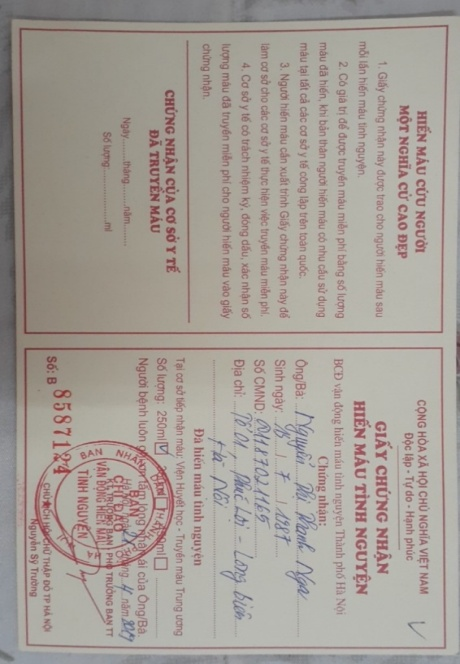 HIẾN MÁU CỨU NGƯỜI
MỘT NGHĨA CỬ CAO ĐẸP
1. Giấy chứng nhận này được trao cho người hiến máu sau
mỗi lần hiến máu tình nguyện.
2. Có giá trị để được truyền máu miễn phí bằng số lượng
máu đã hiến, khi bản thân người hiến máu có nhu cầu sử dụng
máu tại tất cả các cơ sở y tế công lập trên toàn quốc.
3. Người hiến máu cần xuất trình Giấy chứng nhận này để
làm cơ sở cho các cơ sở y tế thực hiện việc truyền máu miễn phí.
4. Cơ sở y tế có trách nhiệm ký, đóng dấu, xác nhận số
lượng máu đã truyền miễn phí cho người hiến máu vào giấy
chứng nhận.
CHỨNG NHẬN CỦA CƠ SỞ Y TẾ
ĐÃ TRUYỀN MÁU
Ngày......tháng......năm......
Số lượng:..................ml
CỘNG HÒA XÃ HỘI CHỦ NGHĨA VIỆT NAM
Độc lập - Tự do - Hạnh phúc
GIẤY CHỨNG NHẬN
HIẾN MÁU TÌNH NGUYỆN
BCĐ vận động hiến máu tình nguyện Thành phố Hà Nội
Chứng nhận:
Ông/Bà: Nguyễn Thị Thanh Nga
Sinh ngày: / 7 / 1987
Số CMND: 001187021165
Địa chỉ: Tổ 01, Phúc Lợi - Long biên
Hà Nội
Đã hiến máu tình nguyện
Tại cơ sở tiếp nhận máu: Viện Huyết học - Truyền máu Trung ương
Số lượng: 250ml
Người bệnh luôn tấm lòng nhân ái của Ông/Bà
tháng 4 năm 2019
BAN NHÂN DÂN
BAN
CHỈ ĐẠO
VẬN ĐỘNG HIẾN MÁU
TÌNH NGUYỆN
PHÓ TRƯỞNG BAN TT
CHỦ TỊCH HỘI CHỮ THẬP ĐỎ TP HÀ NỘI
Nguyễn Sỹ Trường
Số: B 8587124